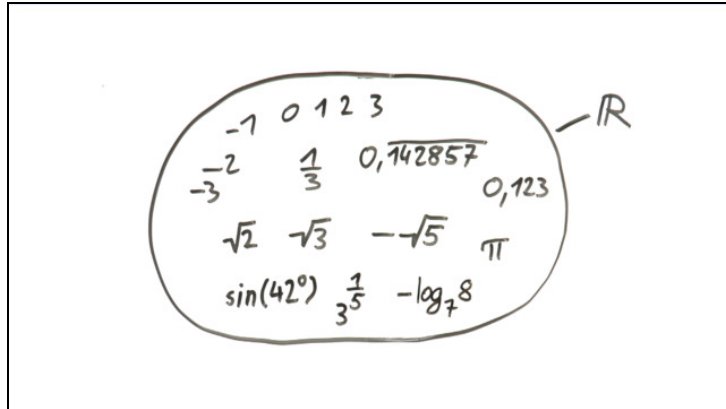 -1 0 1 2 3
ℝ
-2 1/3 0,1̅4̅2̅8̅5̅7̅
-3 0,123
√2 √3 -√5 π
sin(42°) 3^(1/5) -log₇8